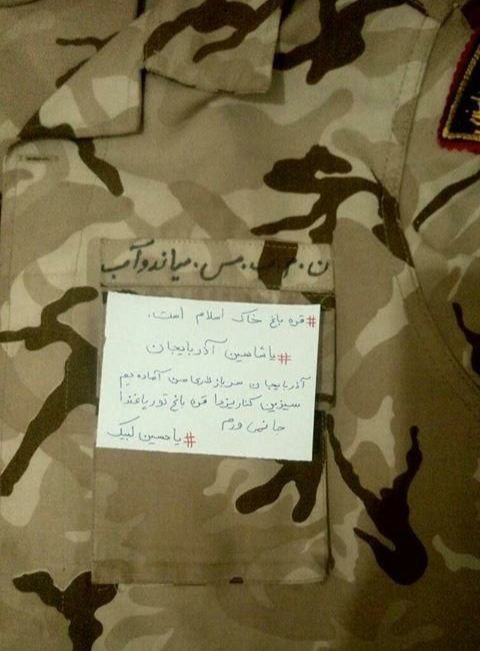 ن. م. ب. س. میاندوآب
#قره باغ خاک اسلام است.
#یاشاسین آذربایجان
آذربایجان سربازلاری من آماده یم
سیزین کناریزدا قره باغ توپراغندا
جانمی ورم
#یاحسین لبیک